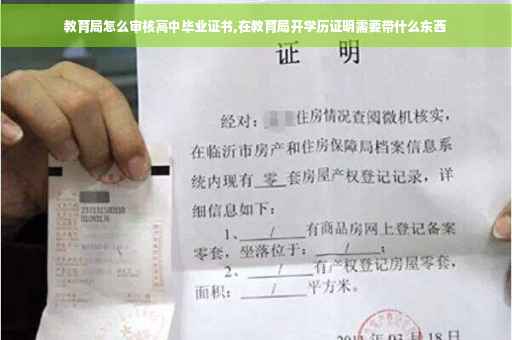 教育局怎么审核高中毕业证书,在教育局开学历证明需要带什么东西
证 明
经对:住房情况查阅微机核实,
在临沂市房产和住房保障局档案信息系
统内现有 零 套房屋产权登记记录,详
细信息如下:
1、 / 有商品房网上登记备案
零套,坐落位于: / ;
2、 / 有产权登记房屋零套,
面积: / 平方米。
03 月 18 日